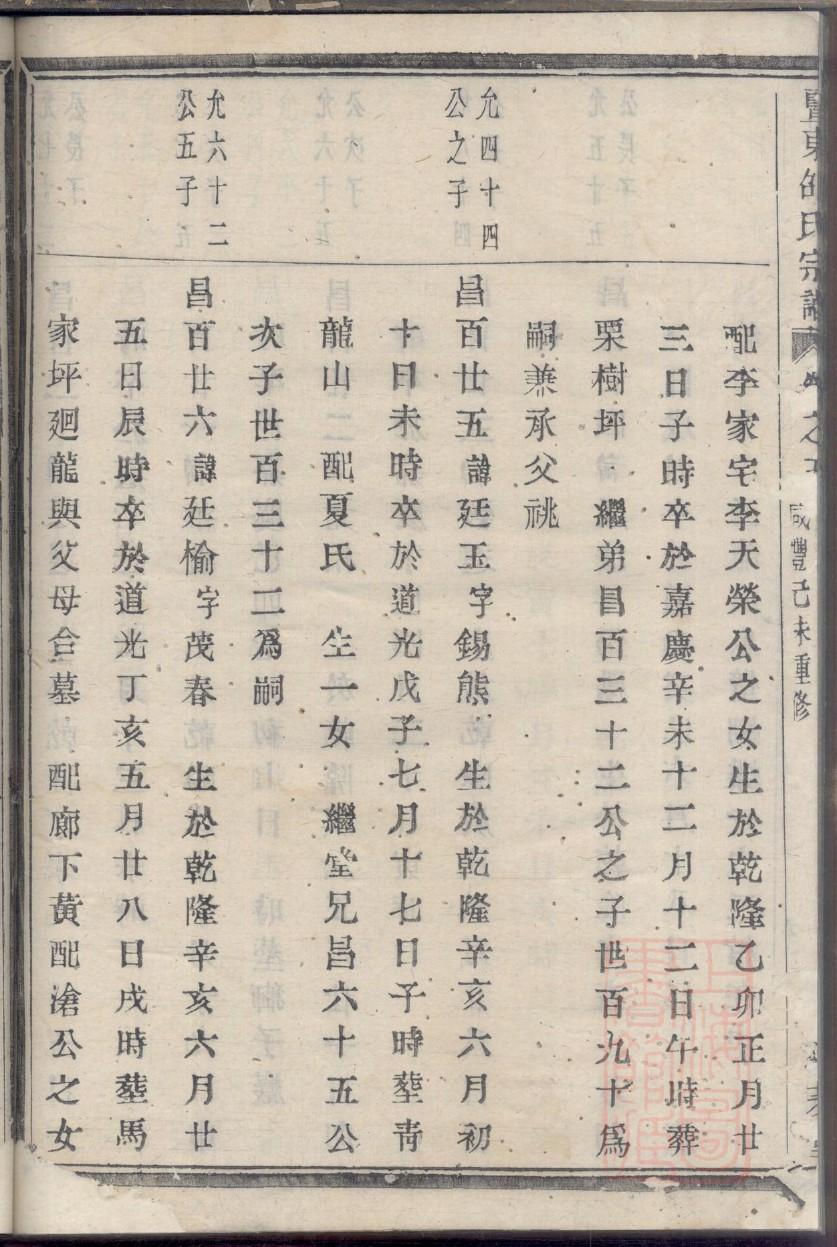 咸豐己未重修
配李家宅李天榮公之女生於乾隆乙卯正月廿
三日子時卒於嘉慶辛未十二月十二日午時葬
栗樹坪 繼弟昌百三十二公之子世百九十爲
嗣兼承父祧
允四十四
公之子
昌百廿五諱廷玉字錫熊 生於乾隆辛亥六月初
十日未時卒於道光戊子七月十七日子時塟青
龍山二配夏氏 生一女 繼堂兄昌六十五公
次子世百三十二爲嗣
允六十二
公五子
昌百廿六諱廷愉字茂春 生於乾隆辛亥六月廿
五日辰時卒於道光丁亥五月廿八日戌時塟馬
家坪廻龍與父母合墓 配廊下黃配滄公之女